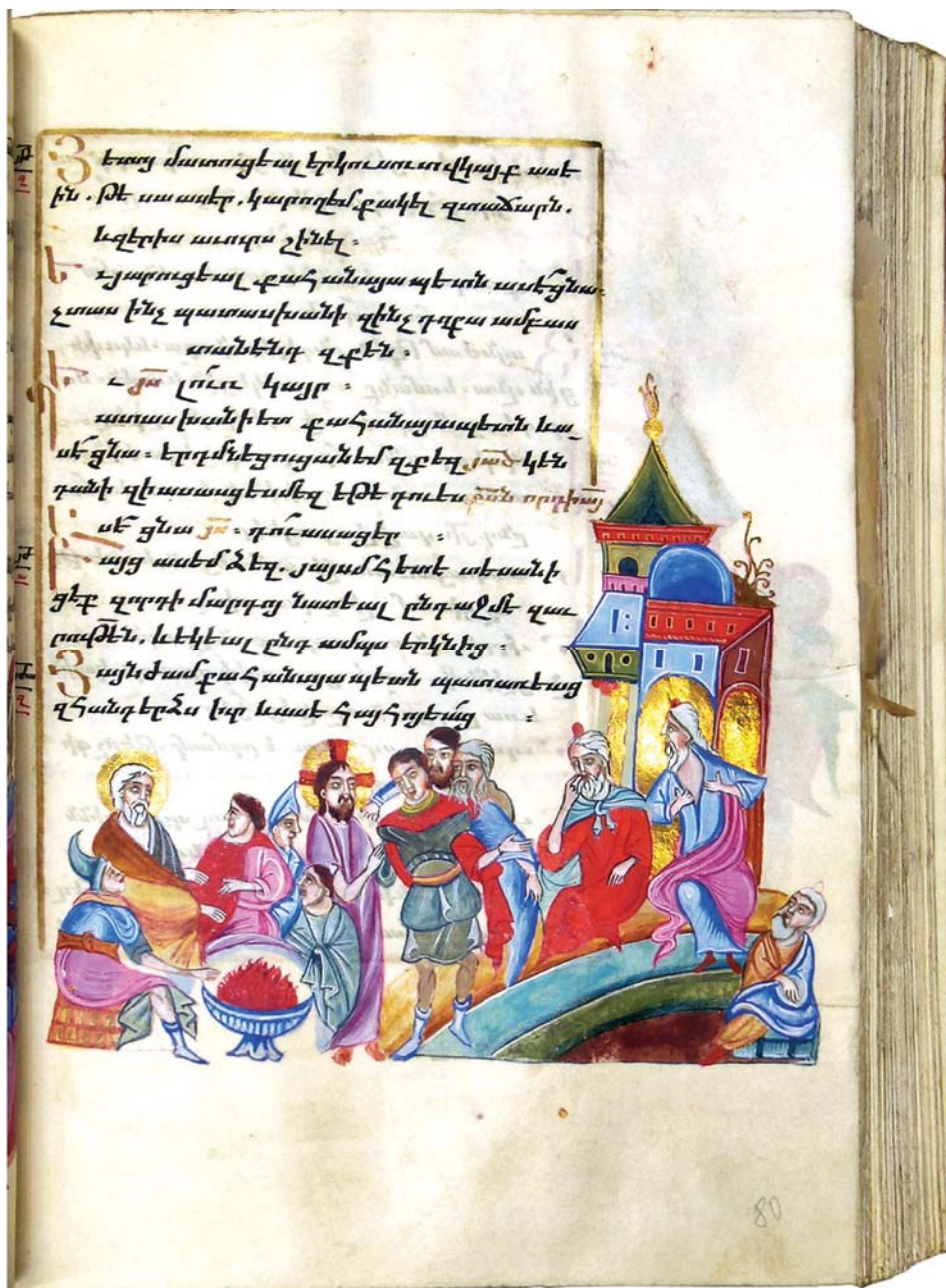 Յետոյ մատուցեալ երկու սուտ վկայք ասե
ին. թէ սա ասէր, կարող եմ քակել զտաճարն.
և զերիս աւուրս շինել:
Եւ յարուցեալ քահանայապետն ասէ ցնա.
չտաս ինչ պատասխանի զինչ դոքա ամբաս
տանեն զքեն:
Եւ յս լուռ կայր:
Պատասխանի ետ քահանայապետն և ա
սէ ցնա. երդմնեցուցանեմ զքեզ յած կեն
դանի զի ասասցես մեզ եթէ դու ես քսն որդի այ
Ասէ ցնա յս. դու ասացեր:
Բայց ասեմ ձեզ. յայսմ հետէ տեսանի
ցէք զորդի մարդոյ նստեալ ընդ աջմէ զաւ
րութեն. և եկեալ ընդ ամպս երկնից:
Յայնժամ քահանայապետն պատառեաց
զհանդերձս իւր և ասէ հայհոյեաց:
80